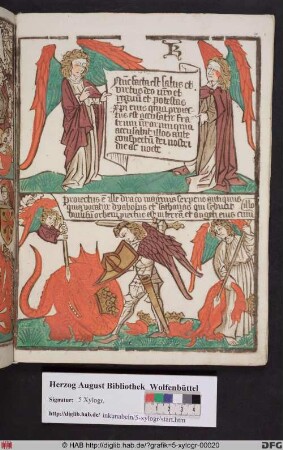 Nunc facta est salus et
virtus dei nostri et
regnum et potestas
xpi eius quia proiec
tus est accusator fra
trum nostrorum qui
accusabat illos ante
conspectum dei nostri
die ac nocte
Proiectus est ille draco magnus serpens antiquus
qui vocatur dyabolus et sathanas qui seducit
orbem proiectus est in terra et angeli eius cum illo
Herzog August Bibliothek Wolfenbüttel
Signatur: 5 Xylogr.
http://diglib.hab.de/ inkunabeln/5-xylogr/start.htm
© HAB http://diglib.hab.de/?grafik=5-xylogr-00020
DFG